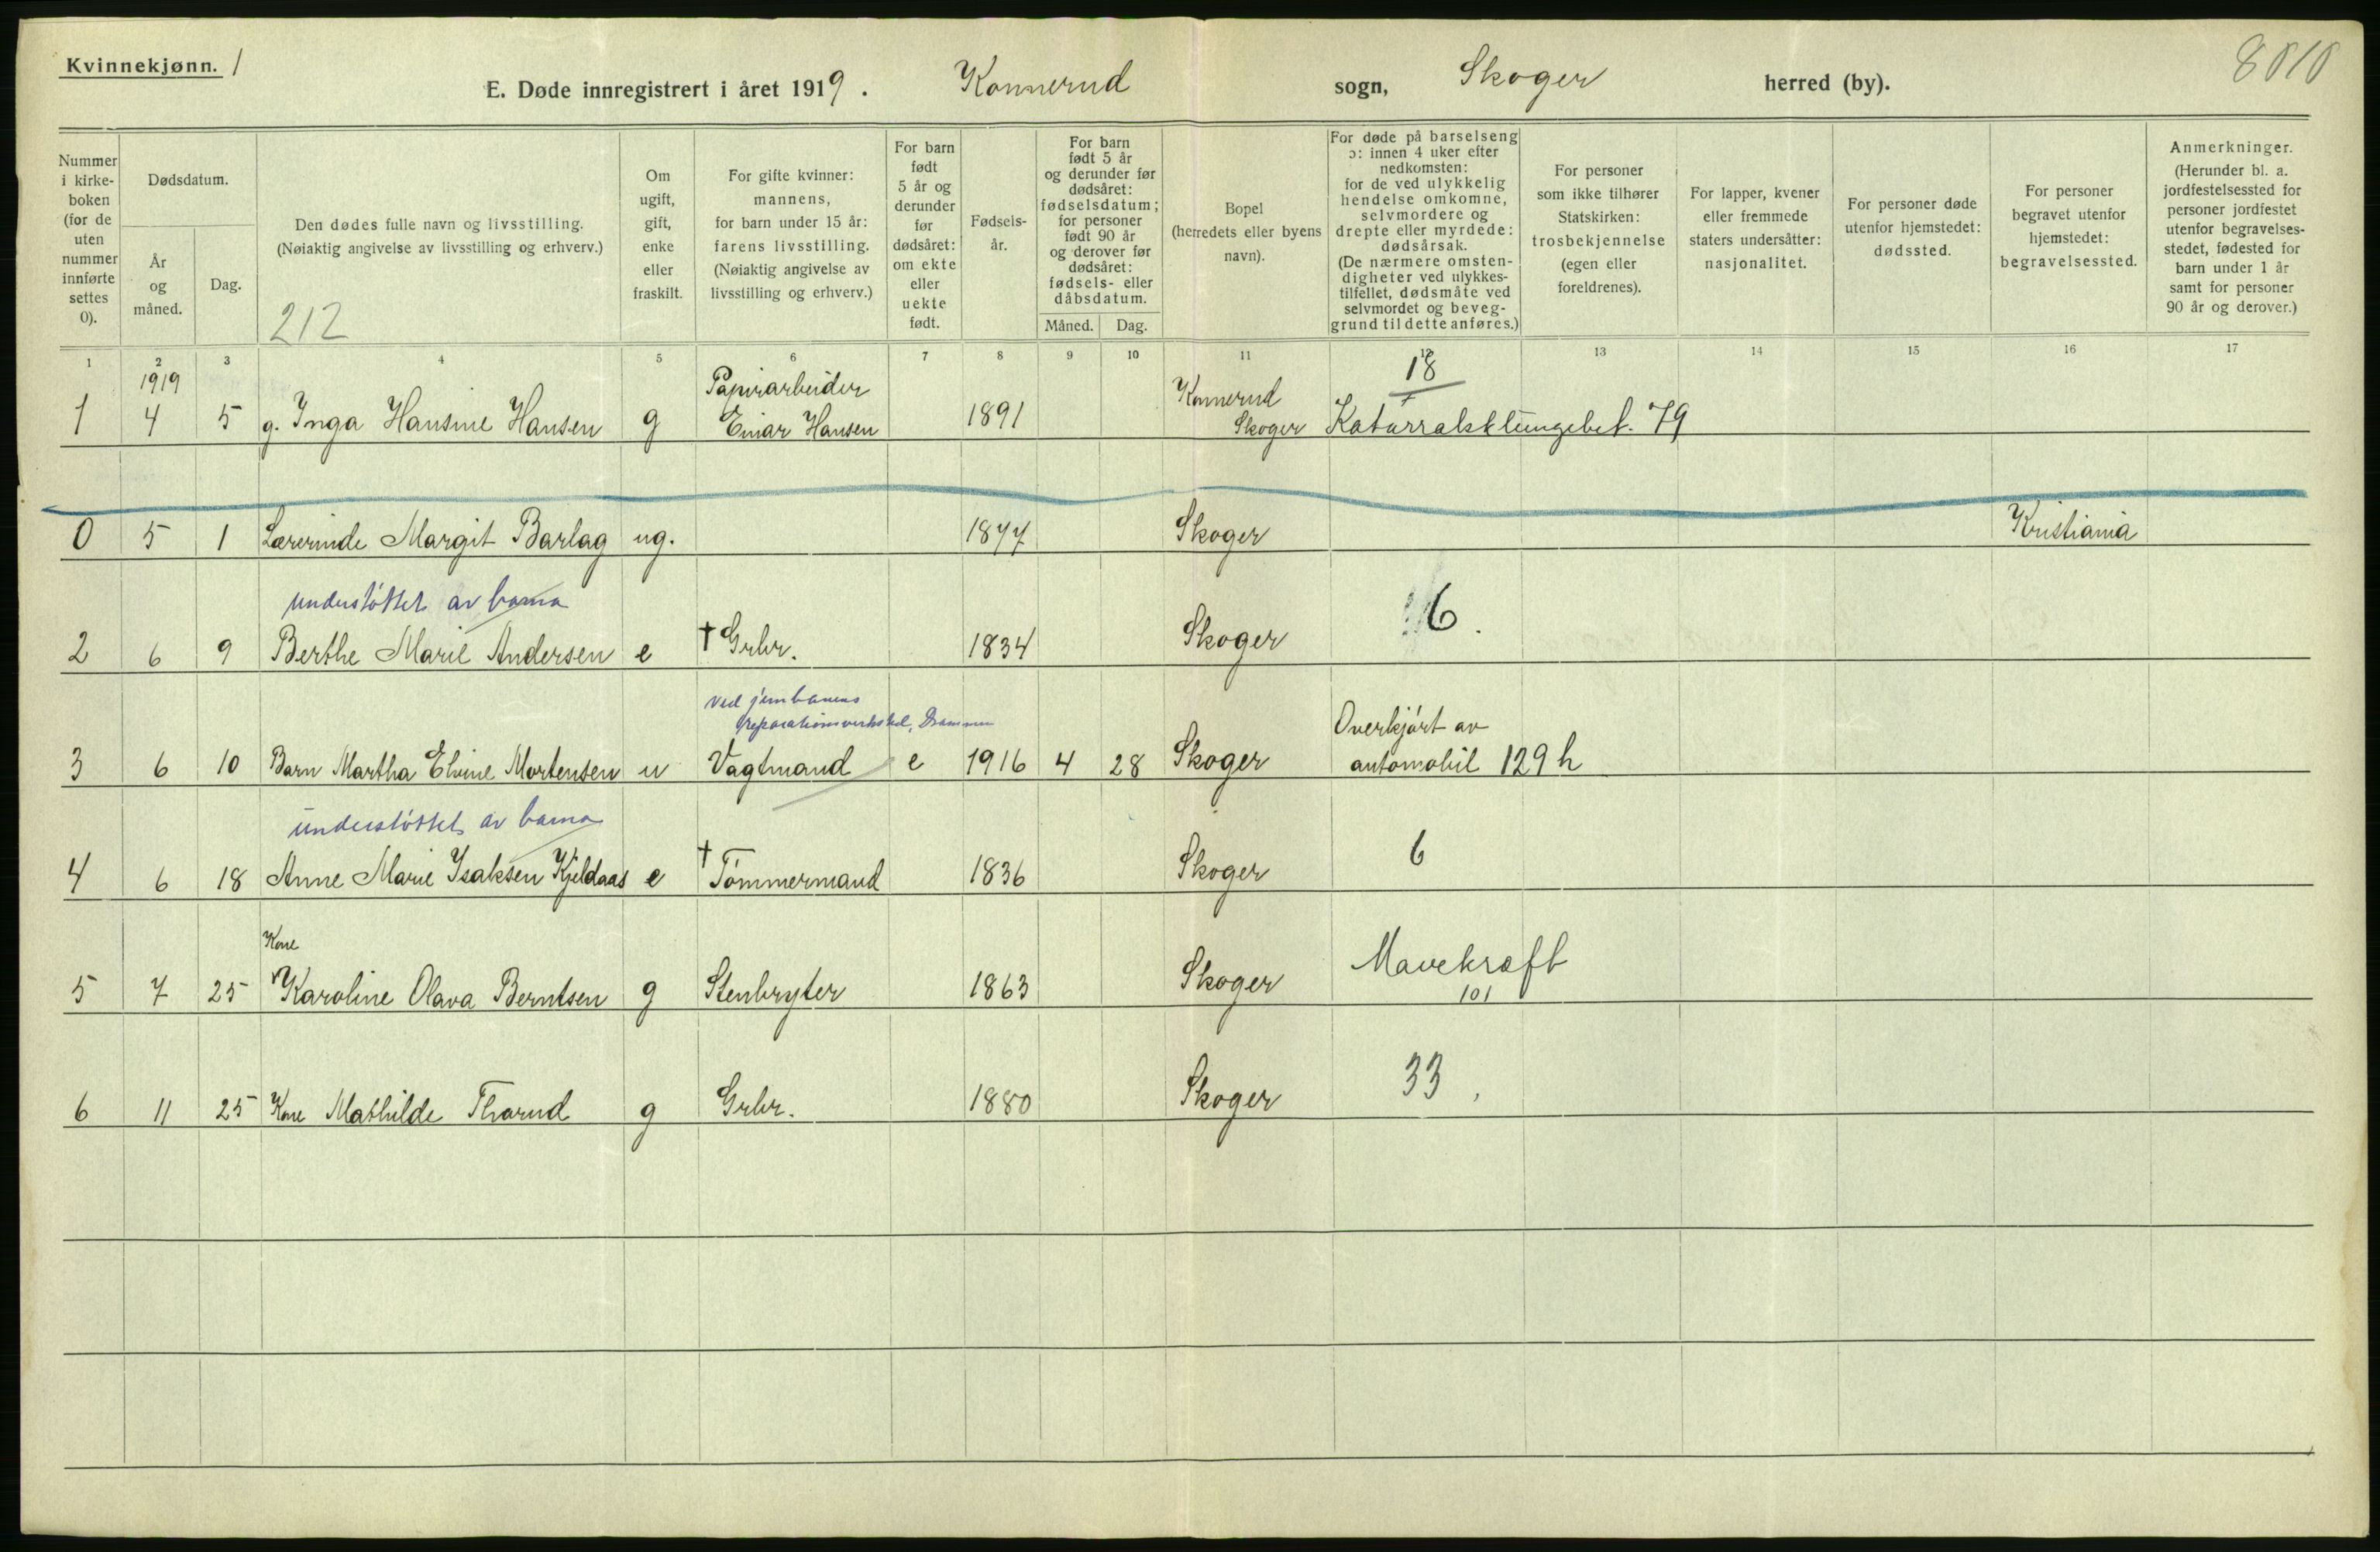 Kvinnekjønn. 1
8010
E. Døde innregistrert i året 1919. Konnerud sogn, Skoger herred (by).
Nummer i kirke-boken (for de uten nummer innførte settes 0).
Dødsdatum.
År og måned.
Dag.
Den dødes fulle navn og livsstilling.
(Nøiaktig angivelse av livsstilling og erhverv.)
212
Om ugift, gift, enke eller fraskilt.
For gifte kvinner: mannens, for barn under 15 år: farens livsstilling. (Nøiaktig angivelse av livsstilling og erhverv.)
For barn født 5 år og derunder før dødsåret: om ekte eller uekte født.
Fødsels-år.
For barn født 5 år og derunder før dødsåret: fødselsdatum; for personer født 90 år og derover før dødsåret: fødsels- eller dåbsdatum.
Måned. Dag.
Bopel (herredets eller byens navn).
For døde på barselseng ɔ: innen 4 uker efter nedkomsten: for de ved ulykkelig hendelse omkomne, selvmordere og drepte eller myrdede: dødsårsak. (De nærmere omsten-digheter ved ulykkes-tilfellet, dødsmåte ved selvmordet og beveg-grund til dette anføres.)
For personer som ikke tilhører Statskirken: trosbekjennelse (egen eller foreldrenes).
For lapper, kvener eller fremmede staters undersåtter: nasjonalitet.
For personer døde utenfor hjemstedet: dødssted.
For personer begravet utenfor hjemstedet: begravelsessted.
Anmerkninger. (Herunder bl. a. jordfestelsessted for personer jordfestet utenfor begravelses-stedet, fødested for barn under 1 år samt for personer 90 år og derover.)
1 2 3 4 5 6 7 8 9 10 11 12 13 14 15 16 17
1919 Papirarbeider Konnerud 18
1 4 5 g. Inga Hansine Hansen g Einar Hansen 1891 Skoger Katarralsk lungebet. 79
0 5 1 Lærerinde Margit Barlag ug. 1877 Skoger Kristiania
understøttet av barna
2 6 9 Berthe Marie Andersen e † Grbr. 1834 Skoger 6.
ved jernbanens
reparationsverksted, Drammen
Overkjørt av
3 6 10 Barn Martha Elvine Mortensen u Vagtmand e 1916 4 28 Skoger automobil 129 h
understøttet av barna
4 6 18 Anne Marie Isaksen Kjeldaas e † Tømmermand 1836 Skoger 6
Kone
5 7 25 Karoline Olava Berntsen g Stenbryter 1863 Skoger Mavekræft
101
6 11 25 Kone Mathilde Thorud g Grbr. 1880 Skoger 33